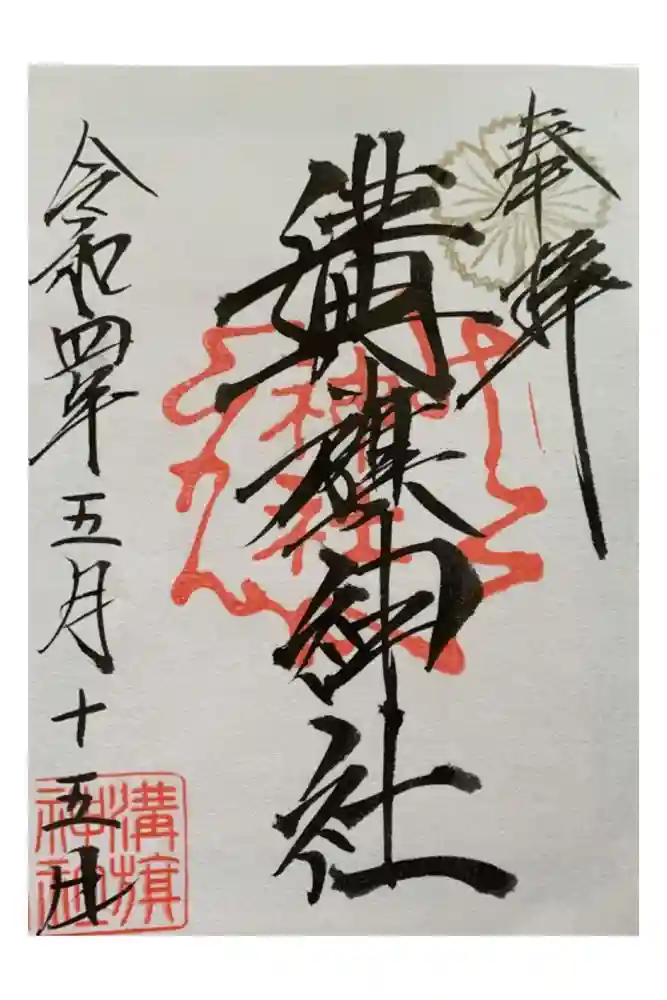 奉拝
溝旗神社
令和四年五月十五日
溝旗
神社
神社